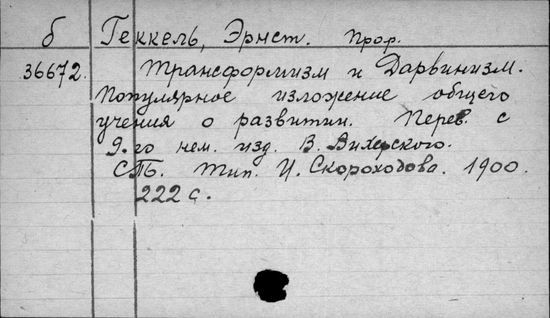 б Геккель, Эрнст. Проф.
36672. Трансформизм и Дарвинизм.
Популярное изложение общего
учения о развитии. Перев. с
9-го нем. изд. В. Вихерского.
СПб. Тип. И. Скороходова. 1900.
222 с.